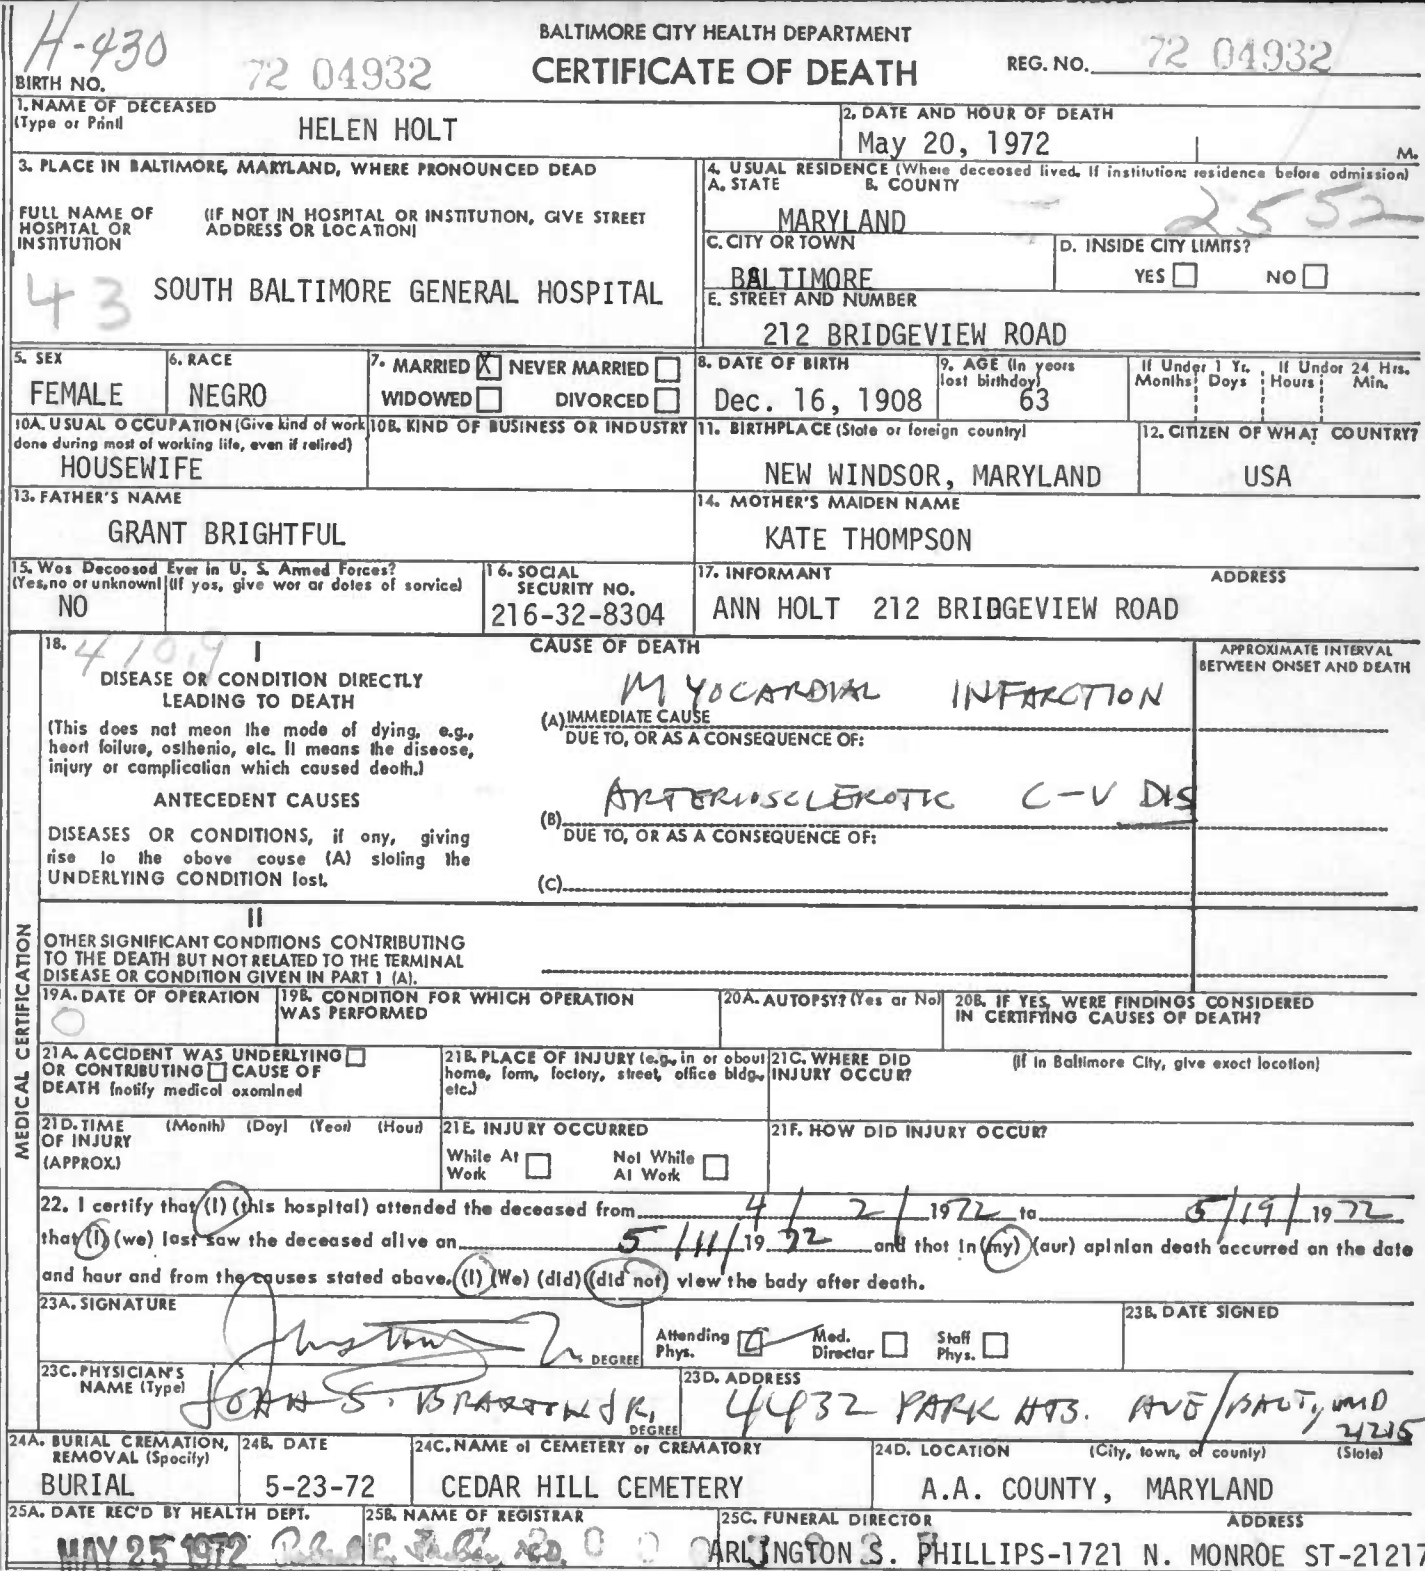 H-430
BALTIMORE CITY HEALTH DEPARTMENT
BIRTH NO. 72 04932 CERTIFICATE OF DEATH REG. NO. 72 04932
1. NAME OF DECEASED (Type or Print) HELEN HOLT
2. DATE AND HOUR OF DEATH May 20, 1972 M.
3. PLACE IN BALTIMORE, MARYLAND, WHERE PRONOUNCED DEAD
FULL NAME OF HOSPITAL OR INSTITUTION (IF NOT IN HOSPITAL OR INSTITUTION, GIVE STREET ADDRESS OR LOCATION)
43 SOUTH BALTIMORE GENERAL HOSPITAL
4. USUAL RESIDENCE (Where deceased lived. If institution: residence before admission)
A. STATE B. COUNTY
MARYLAND 2552
C. CITY OR TOWN BALTIMORE
D. INSIDE CITY LIMITS? YES NO
E. STREET AND NUMBER
212 BRIDGEVIEW ROAD
5. SEX FEMALE
6. RACE NEGRO
7. MARRIED X NEVER MARRIED
WIDOWED DIVORCED
8. DATE OF BIRTH Dec. 16, 1908
9. AGE (In years last birthday) 63
If Under 1 Yr. Months Days If Under 24 Hrs. Hours Min.
10A. USUAL OCCUPATION (Give kind of work done during most of working life, even if retired) HOUSEWIFE
10B. KIND OF BUSINESS OR INDUSTRY
11. BIRTHPLACE (State or foreign country) NEW WINDSOR, MARYLAND
12. CITIZEN OF WHAT COUNTRY? USA
13. FATHER'S NAME GRANT BRIGHTFUL
14. MOTHER'S MAIDEN NAME KATE THOMPSON
15. Was Deceased Ever in U. S. Armed Forces? (Yes, no or unknown) (If yes, give war or dates of service) NO
16. SOCIAL SECURITY NO. 216-32-8304
17. INFORMANT ADDRESS
ANN HOLT 212 BRIDGEVIEW ROAD
MEDICAL CERTIFICATION
18. 410.9 I CAUSE OF DEATH
APPROXIMATE INTERVAL BETWEEN ONSET AND DEATH
DISEASE OR CONDITION DIRECTLY LEADING TO DEATH
(This does not mean the mode of dying, e.g., heart failure, asthenia, etc. It means the disease, injury or complication which caused death.)
MYOCARDIAL INFARCTION
(A) IMMEDIATE CAUSE
DUE TO, OR AS A CONSEQUENCE OF:
ANTECEDENT CAUSES
DISEASES OR CONDITIONS, if any, giving rise to the above cause (A) stating the UNDERLYING CONDITION last.
ARTERIOSCLEROTIC C-V DIS
(B)
DUE TO, OR AS A CONSEQUENCE OF:
(C)
II
OTHER SIGNIFICANT CONDITIONS CONTRIBUTING TO THE DEATH BUT NOT RELATED TO THE TERMINAL DISEASE OR CONDITION GIVEN IN PART 1 (A).
19A. DATE OF OPERATION 0
19B. CONDITION FOR WHICH OPERATION WAS PERFORMED
20A. AUTOPSY? (Yes or No)
20B. IF YES, WERE FINDINGS CONSIDERED IN CERTIFYING CAUSES OF DEATH?
21A. ACCIDENT WAS UNDERLYING OR CONTRIBUTING CAUSE OF DEATH (notify medical examiner)
21B. PLACE OF INJURY (e.g., in or about home, farm, factory, street, office bldg., etc.)
21C. WHERE DID INJURY OCCUR? (If in Baltimore City, give exact location)
21D. TIME OF INJURY (APPROX.) (Month) (Day) (Year) (Hour)
21E. INJURY OCCURRED While At Work Not While At Work
21F. HOW DID INJURY OCCUR?
22. I certify that (I) (this hospital) attended the deceased from 4/2/1972 to 5/19/1972
that (I) (we) last saw the deceased alive on 5/11/1972 and that in (my) (our) opinion death occurred on the date
and hour and from the causes stated above. (I) (We) (did) (did not) view the body after death.
23A. SIGNATURE DEGREE
Attending Phys. Med. Director Staff Phys.
23B. DATE SIGNED
23C. PHYSICIAN'S NAME (Type) JOHN S. BRAXTON JR. DEGREE
23D. ADDRESS 4432 PARK HTS. AVE/BALT, MD 21215
24A. BURIAL CREMATION, REMOVAL (Specify) BURIAL
24B. DATE 5-23-72
24C. NAME of CEMETERY or CREMATORY CEDAR HILL CEMETERY
24D. LOCATION (City, town, or county) (State)
A.A. COUNTY, MARYLAND
25A. DATE REC'D BY HEALTH DEPT. MAY 25 1972
25B. NAME OF REGISTRAR
25C. FUNERAL DIRECTOR ADDRESS
ARLINGTON S. PHILLIPS-1721 N. MONROE ST-21217